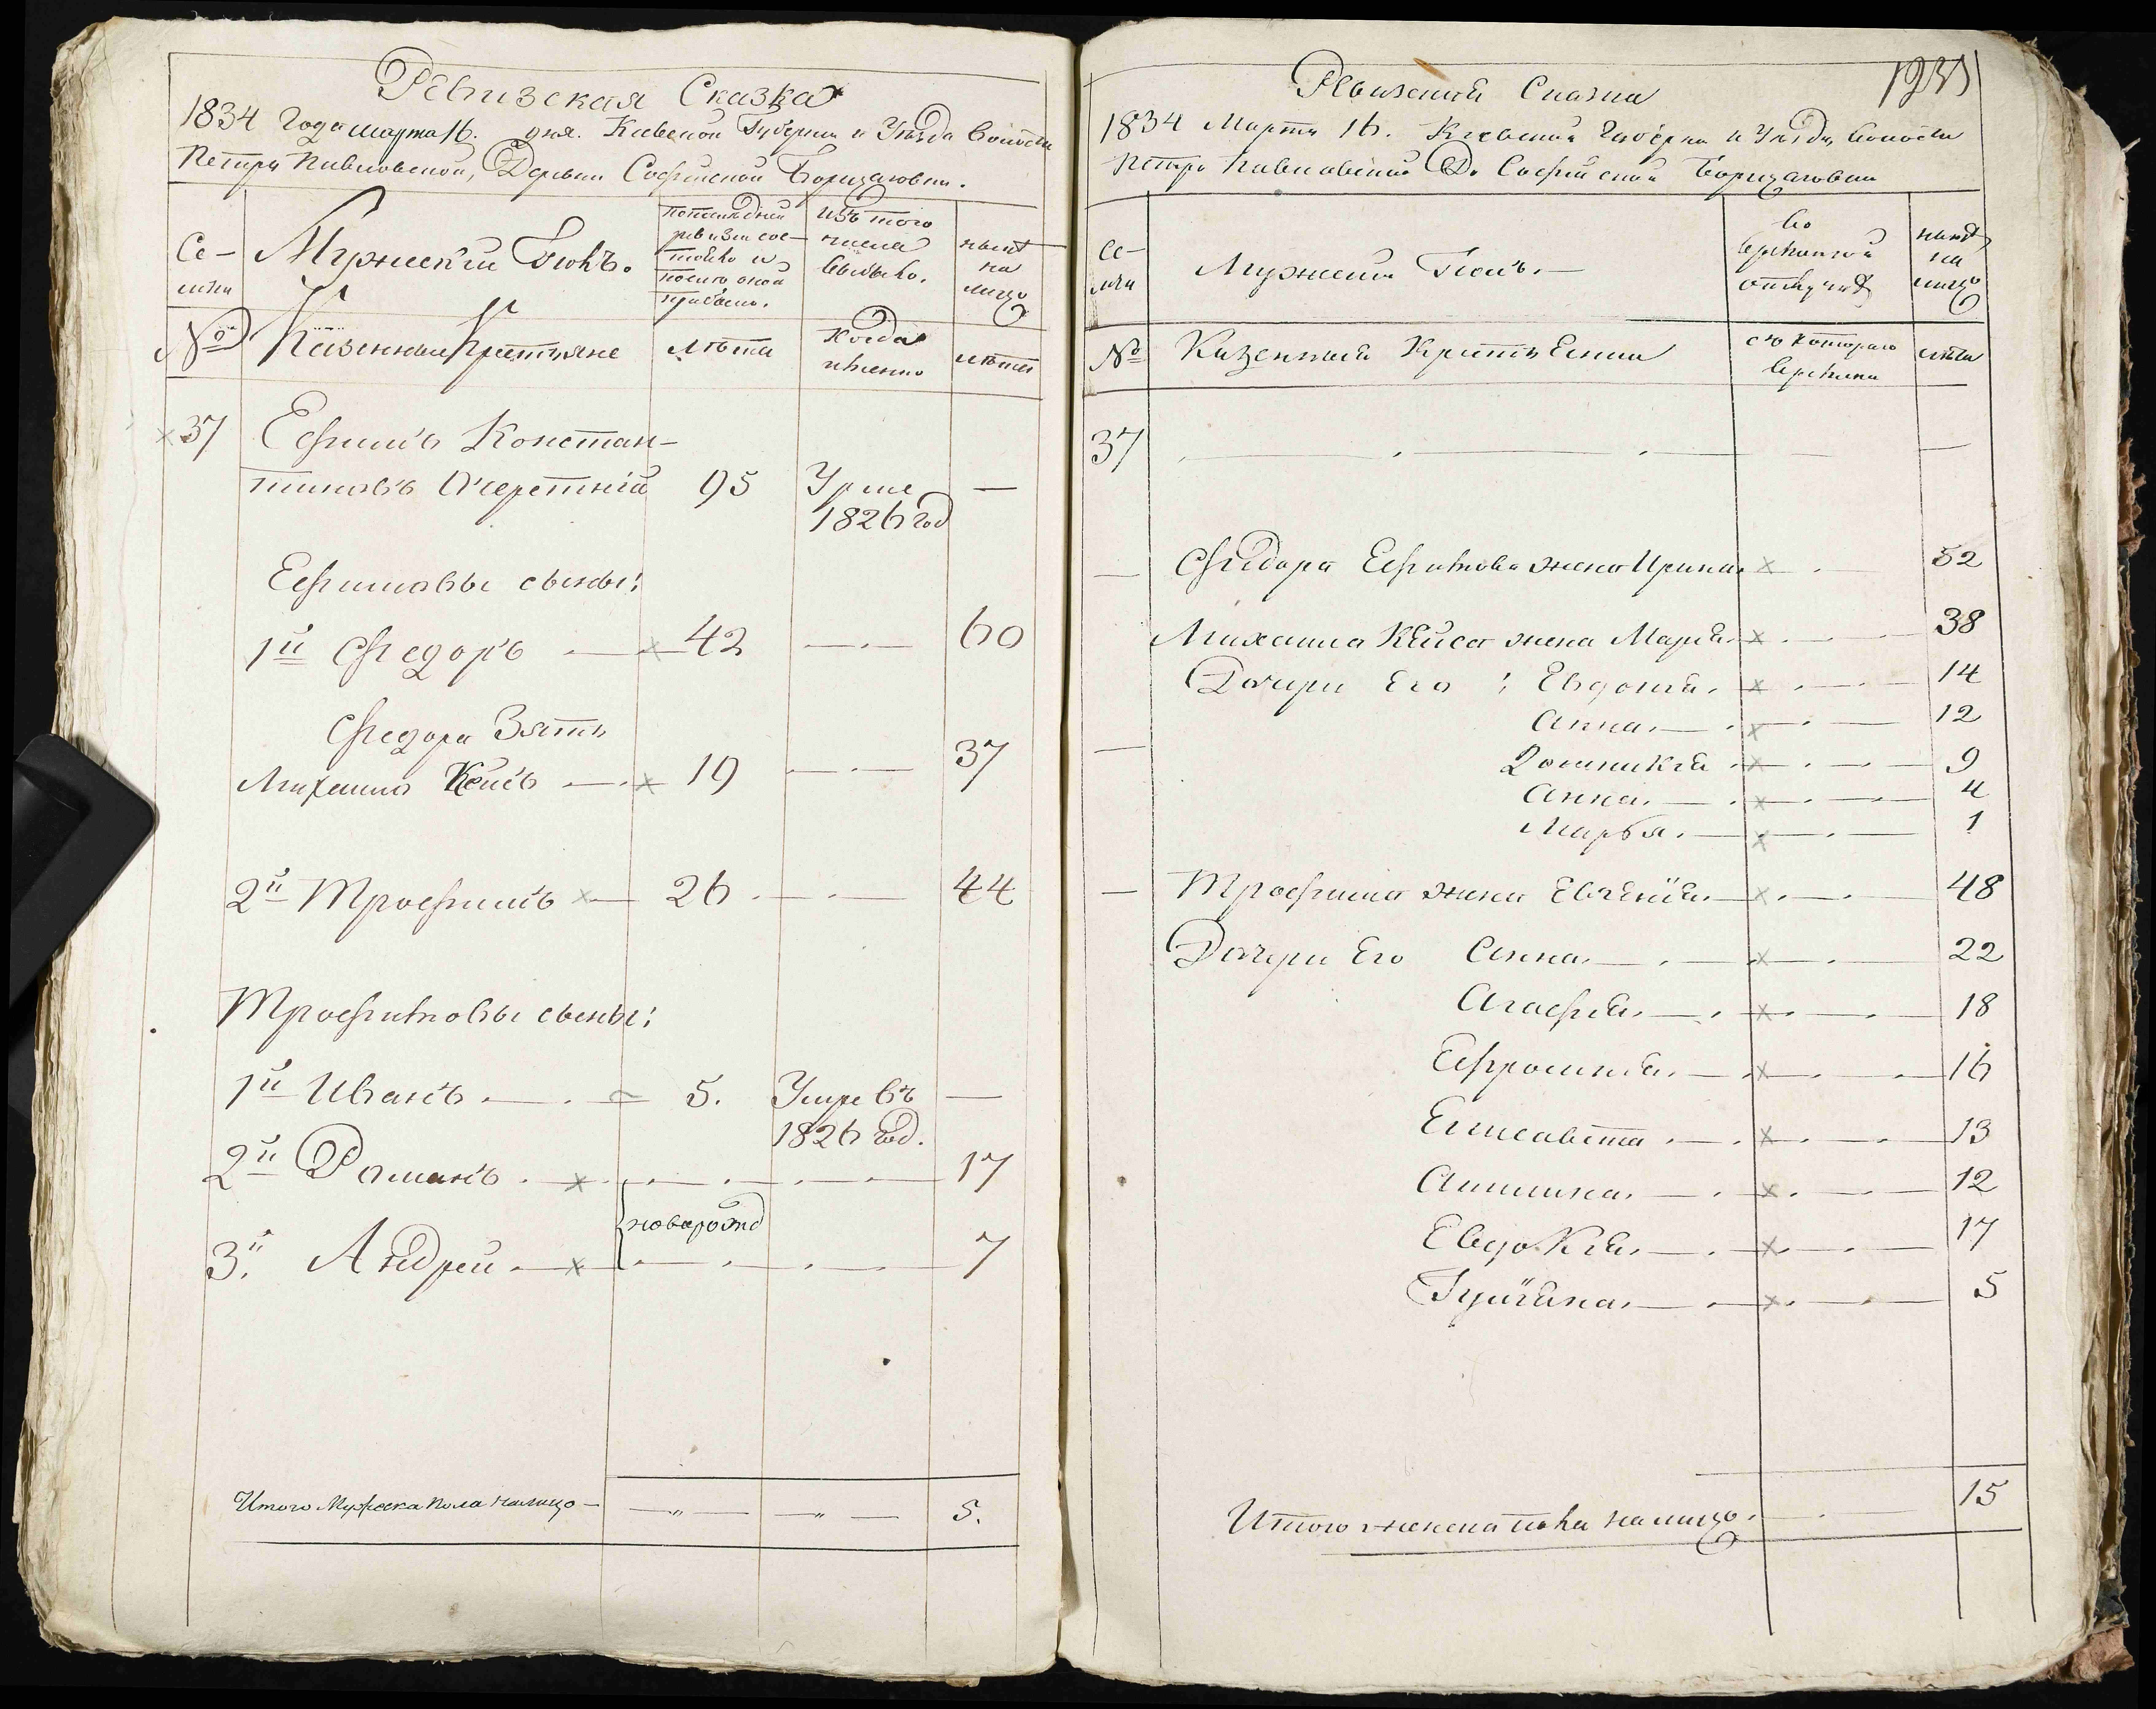 Ревизская Сказка
1834 Года марта 16. дня. Киевской Губернии и Уезда Волости
Петро Павловской, Деревни Софийской Борщаговки.
Се-
мьи
Мужеский Полъ.
последней
ревизии сос-
тояло и
после оной
прибыло.
Изъ того
числа
выбыло.
ныне
на
лицо
№
Казенные Крестьяне
лета
Когда
именно
лета
37 Ефимъ Констан-
тиновъ Очеретній 95 Умре —
1826 год
Ефимовы сыны:
1й Федоръ 42 60
Федора Зять
Михаило Кейсъ 19 37
2й Трофимъ 26 44
Трофимовы сыны:
1й Иванъ 5. Умре въ —
1826 год.
2й Романъ 17
новорожд
3й Андрей 7
Итого Мужеска пола налицо 5.
Ревизская Сказка
1834 Марта 16. Киевской Губерни и Уезда, Волости
Петро Павловской Д. Софийской Борщаговки
Се-
мьи
Мужеский Полъ.
Во
временной
отлучке
ныне
на
лицо
№
Казенныя
съ котораго
времени
лета
37
Федора Ефимова жена Ирина 52
Михаила Кейса жена Марія 38
Дочери Его : Евдокія 14
Анна 12
Домникія 9
Анна 4
Марья 1
Трофима жена Евгенія 48
Дочери Его Анна 22
Агафія 18
Ефросинія 16
Елисавета 13
Акилина 12
Евдокія 17
Іуліяна 5
Итого женска пола налицо 15